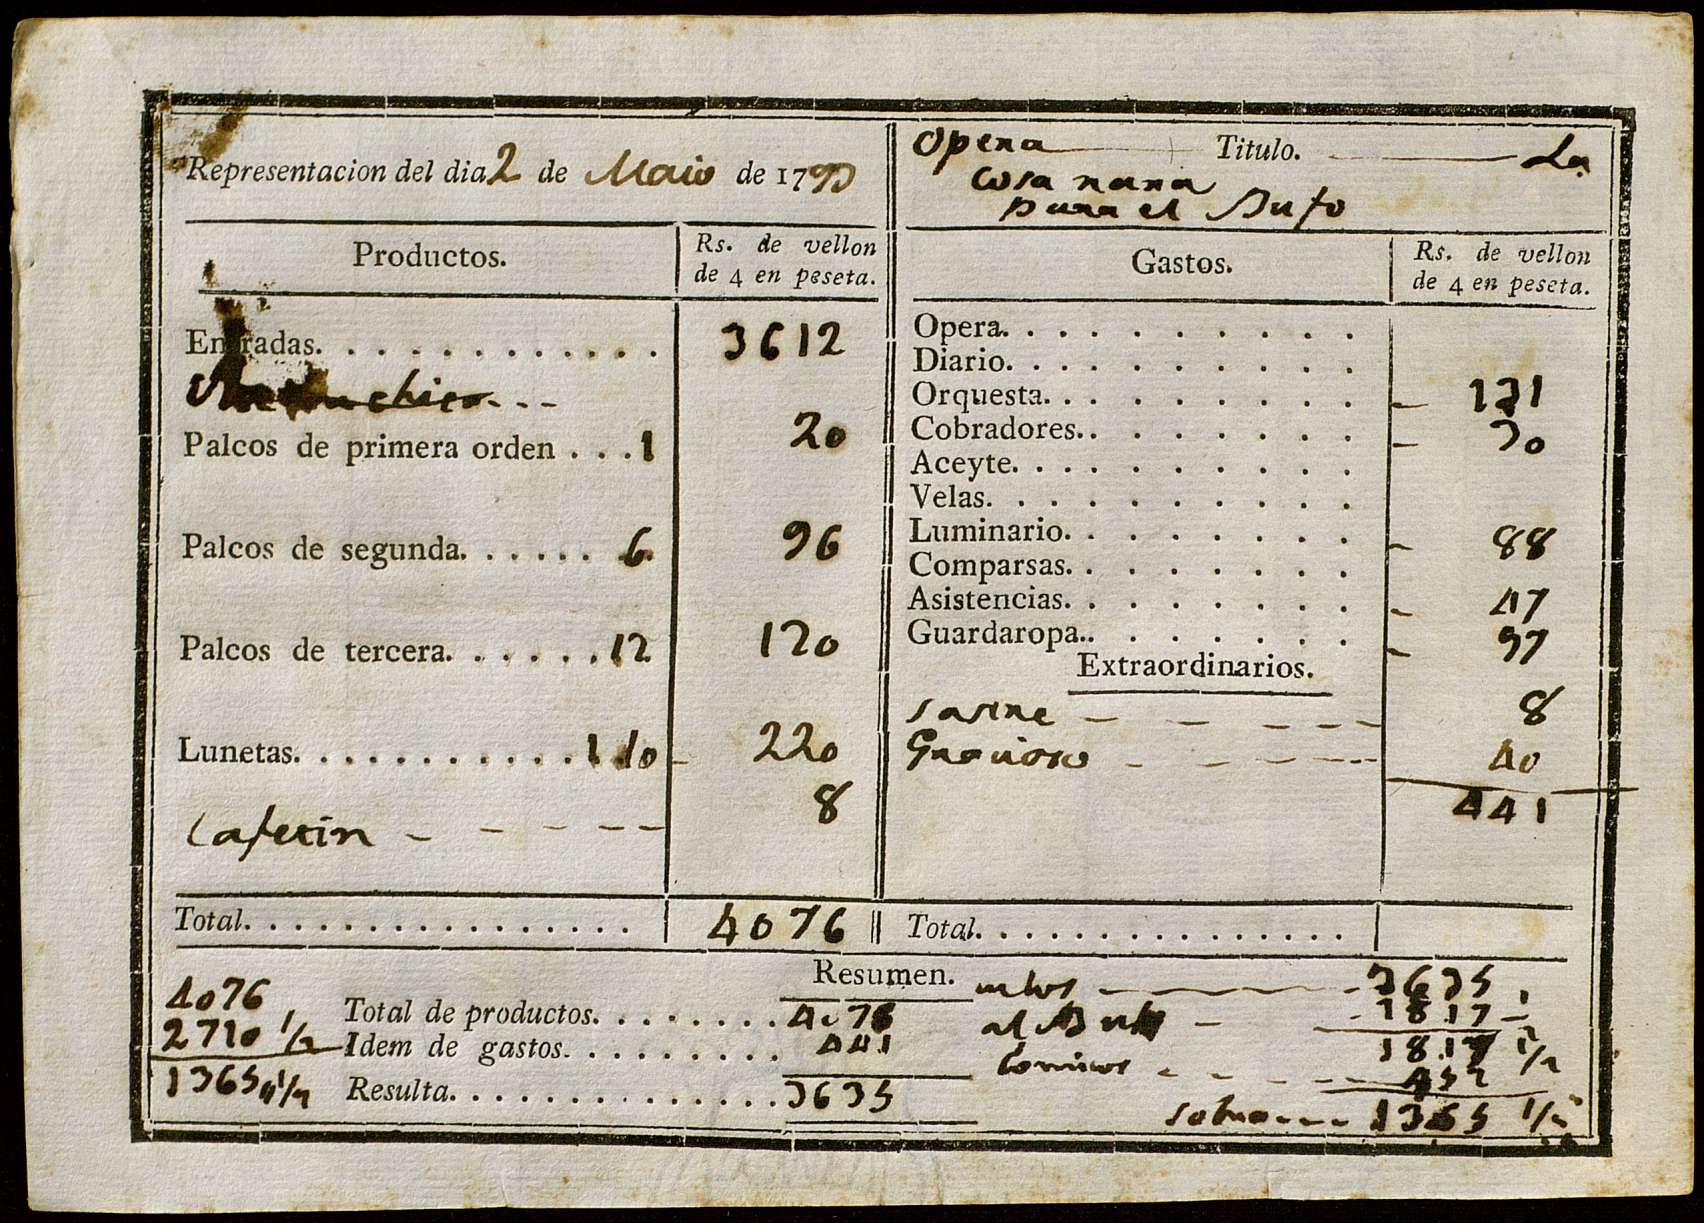 Representacion del dia 2 de Maio de 1790
Opera Titulo. La
Cosa rara
para el Bufo
Productos.
Rs. de vellon
de 4 en peseta.
Entradas. . . . . . . . . . . . . 3612
Palcos de primera orden . . . 1 20
Palcos de segunda. . . . . . 6 96
Palcos de tercera. . . . . . 12 120
Lunetas. . . . . . . . . . . . 110 220
Cafetin - - - - - 8
Total. . . . . . . . . . . . . . . . 4076
Gastos.
Rs. de vellon
de 4 en peseta.
Opera. . . . . . . . . .
Diario. . . . . . . . . .
Orquesta. . . . . . . . . 131
Cobradores. . . . . . . . 30
Aceyte. . . . . . . . . .
Velas. . . . . . . . . .
Luminario. . . . . . . . 88
Comparsas. . . . . . . .
Asistencias. . . . . . . . 47
Guardaropa. . . . . . . . 97
Extraordinarios.
Sastre - - - - 8
Gracioso - - - - 40
441
Total. . . . . . . . . . . . . . .
Resumen.
4076
2710 1/2
1365 1/2
Total de productos. . . . . . . . 4076
Idem de gastos. . . . . . . . . 441
Resulta. . . . . . . . . . . . . . 3635
3635
al Bufo - 1817 1/2
1817 1/2
Comicos - - - - 452
sobra - - - 1365 1/2